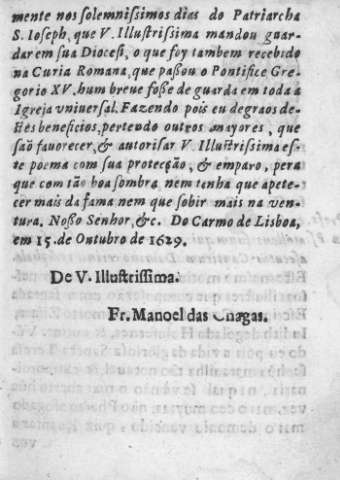 mente nos solemnissimos dias do Patriarcha
S. Ioseph, que V. Illustrissima mandou guar-
dar em sua Diocesi, o que foy tambem recebido
na Curia Romana, que passou o Pontifice Gre-
gorio XV. hum breve fosse de guarda em toda a
Igreja vniuersal. Fazendo pois eu degraos de-
stes beneficios, pertendo outros mayores, que
saõ favorecer, & autorisar V. Illustrissima es-
te poema com sua protecção, & emparo, pera
que com tão boa sombra nem tenha que apete-
cer mais da fama nem que sobir mais na ven-
tura. Nosso Senhor, &c. Do Carmo de Lisboa,
em 15. de Outubro de 1629.
De V. Illustrissima.
Fr. Manoel das Chagas.